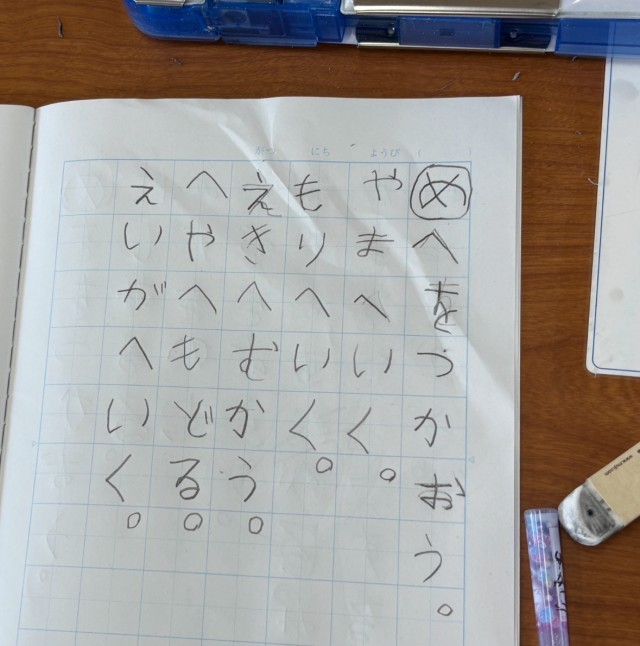 がつ にち ようび ( )
めへをつかおう。
やまへいく。
もりへいく。
えきへむかう。
へやへもどる。
えいがへいく。